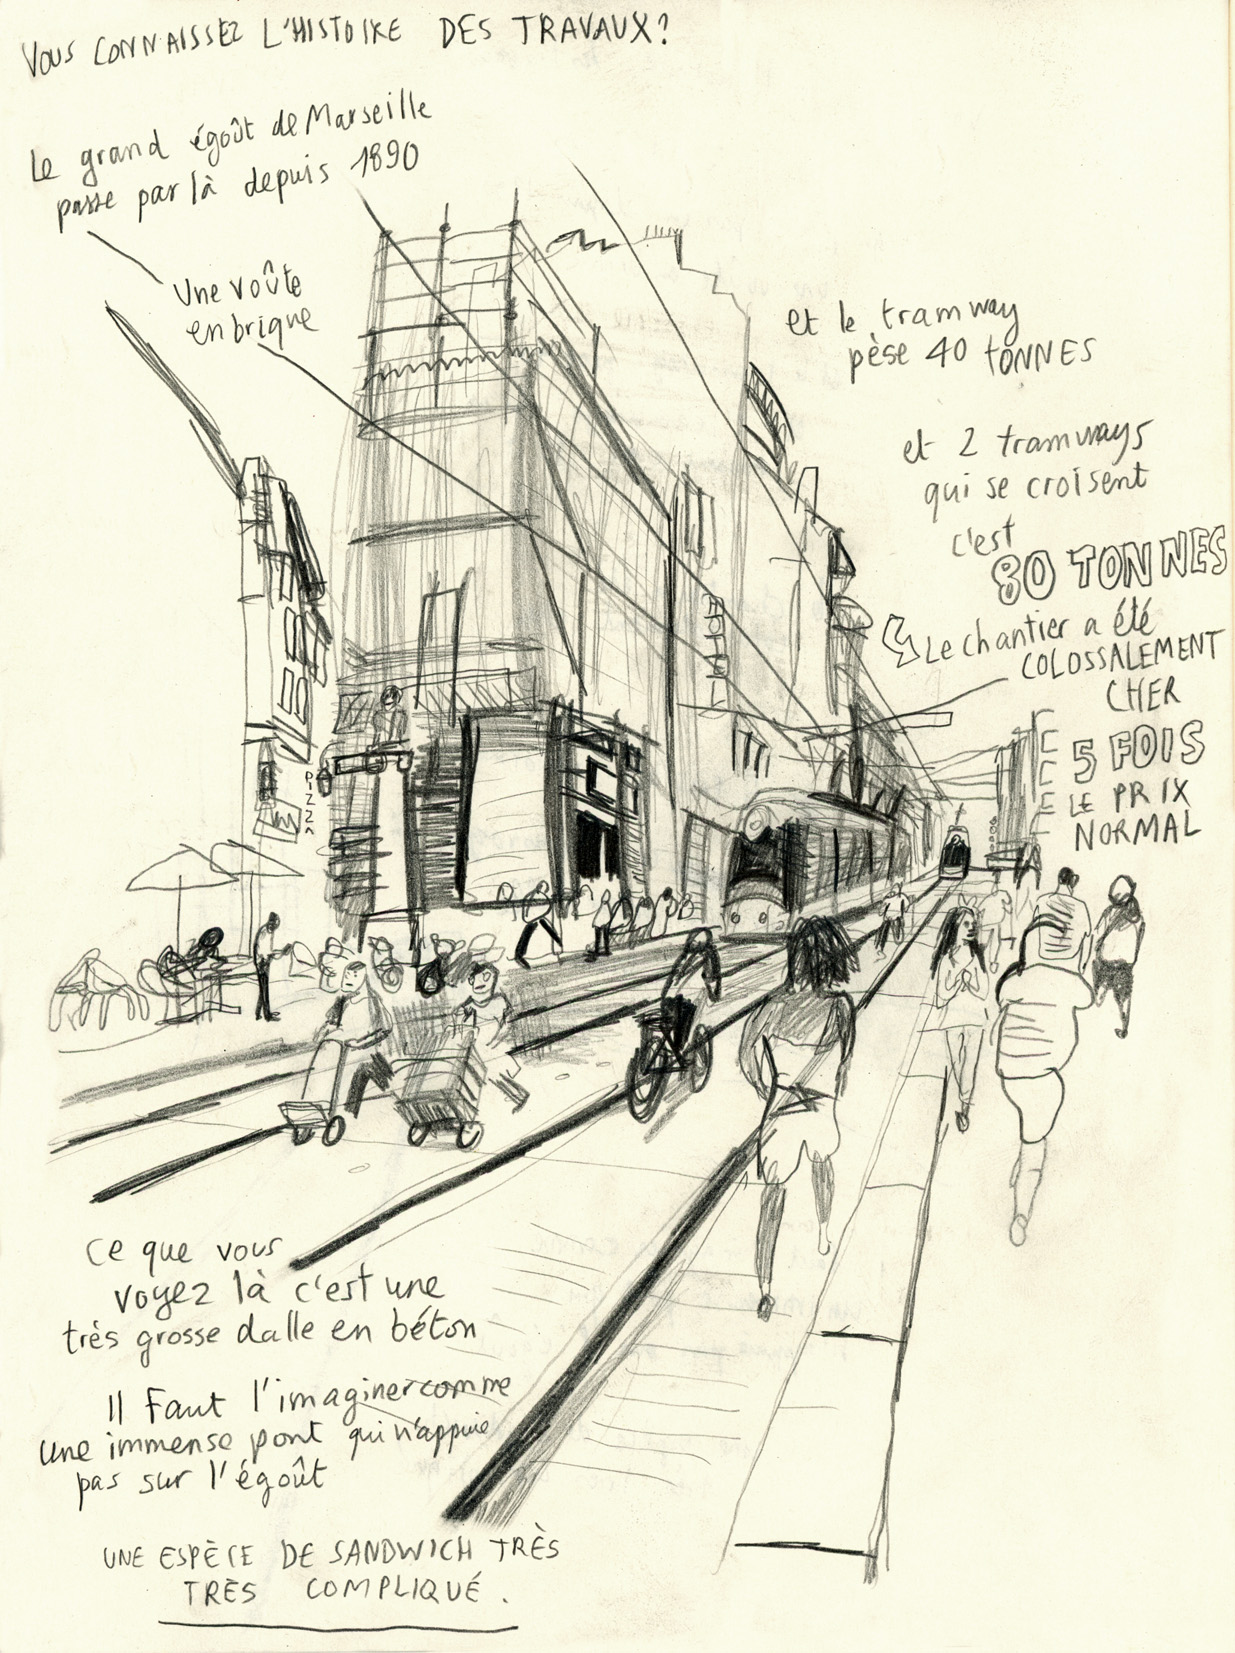 VOUS CONNAISSEZ L'HISTOIRE DES TRAVAUX?
Le grand égoût de Marseille
passe par là depuis 1890
Une voûte
en brique
et le tramway
pèse 40 TONNES
et 2 tramways
qui se croisent
c'est
80 TONNES
Le chantier a été
COLOSSALEMENT
CHER
5 FOIS
LE PRIX
NORMAL
PIZZA
Ce que vous
voyez là c'est une
très grosse dalle en béton
Il Faut l'imaginer comme
une immense pont qui n'appuie
pas sur l'égoût
UNE ESPÈCE DE SANDWICH TRÈS
TRÈS COMPLIQUÉ.